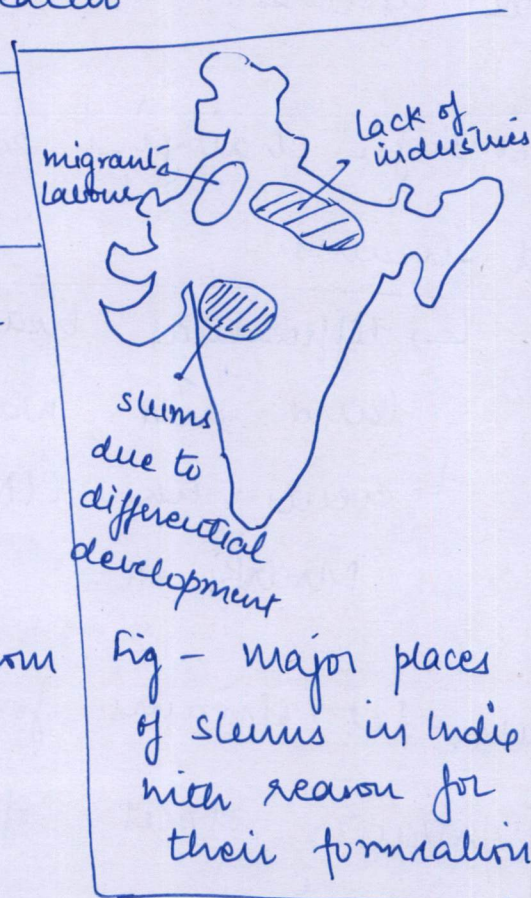 migrant
labour
lack of
industries
slums
due to
differential
development
Fig - Major places
of slums in India
with reason for
their formation